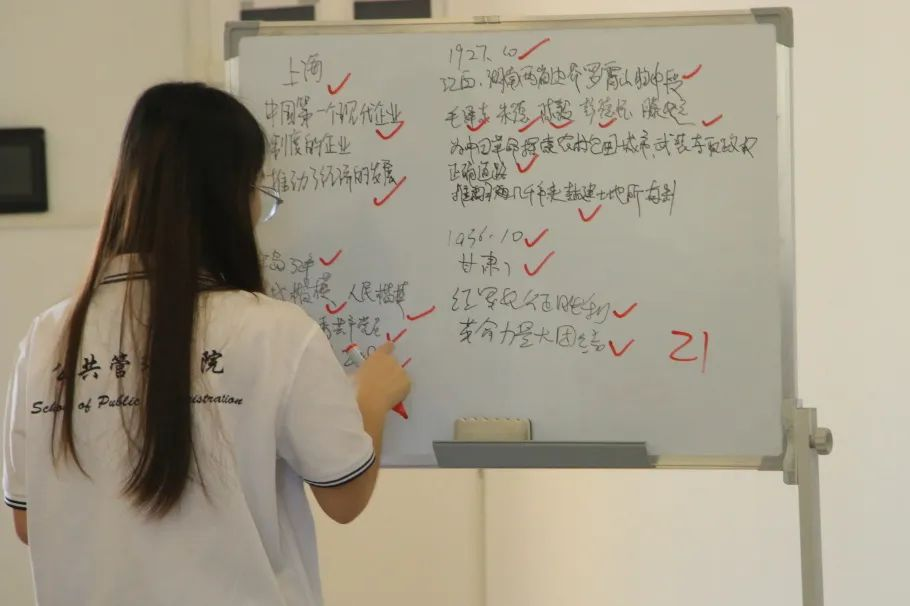 上海
中国第一个现代企业
制度的企业
推动了经济的发展
人民楷模
共产党
1927.10
江西、湖南两省边界罗霄山脉中段
毛泽东 朱德 陈毅 彭德怀 滕代远
为中国革命探索农村包围城市、武装夺取政权
正确道路
几千年来 封建土地所有制
1936.10
甘肃
红军长征胜利
革命力量大团结
21
公共管 院
School of Public